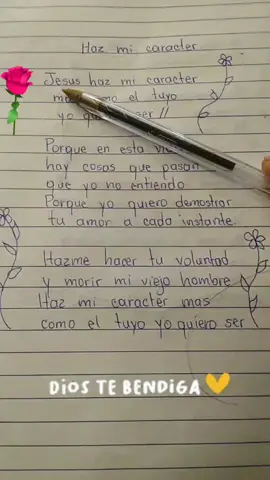 Haz mi caracter
Jesus haz mi caracter
como el tuyo
yo ser //
Porque en esta
hay cosas que pasan
que yo no entiendo
Porque yo quiero demostrar
tu amor a cada instante
Hazme hacer tu voluntad
y morir mi viejo hombre
Haz mi caracter mas
como el tuyo yo quiero ser
DIOS TE BENDIGA